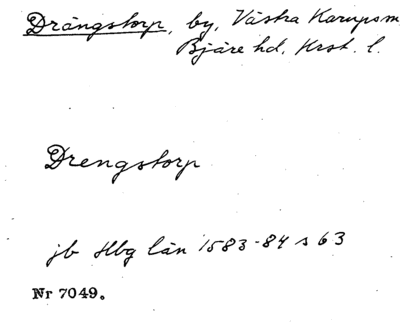 Drängstorp, by, Västra Karups sn
Bjäre hd. Krst. l.
Drengstorp
jb Hbg län 1583-84 s 63
Nr 7049.